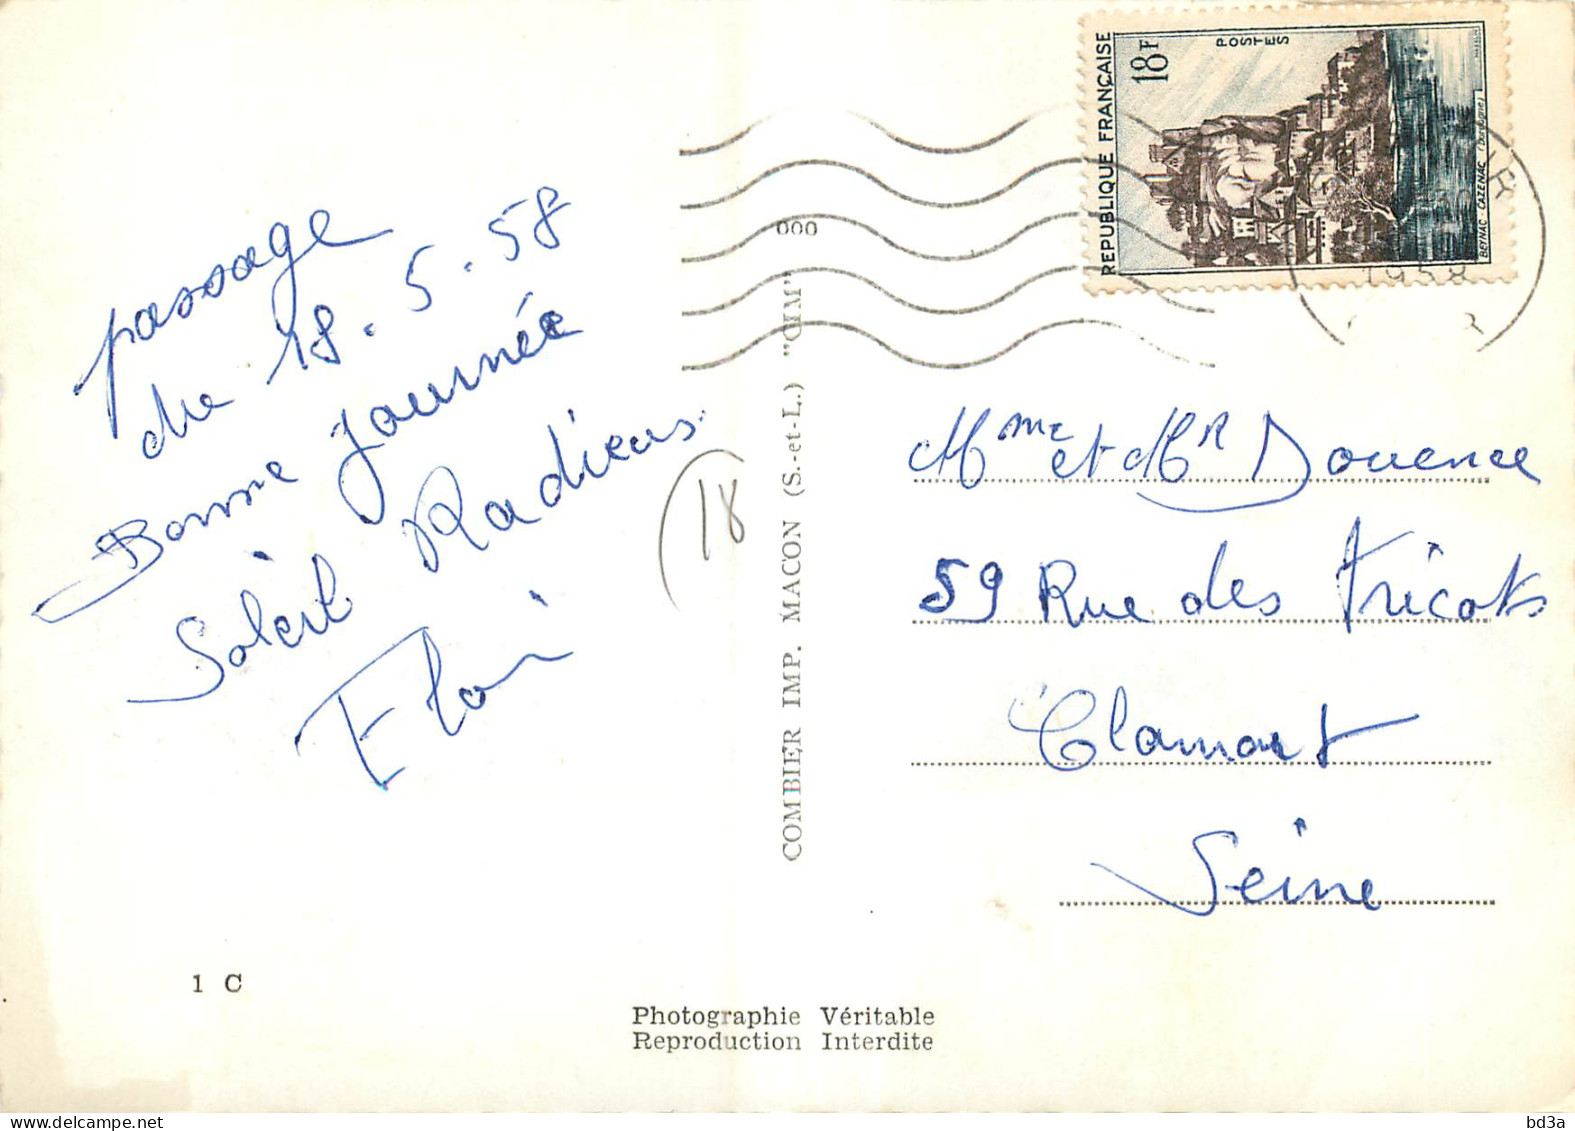 passage
du 18.5.58
Bonne Journée
Soleil Radieux
18
000
COMBIER IMP. MACON (S.-et-L.) "CIM"
REPUBLIQUE FRANÇAISE
18F
POSTES
BEYNAC-CAZENAC (Dordogne)
1958
Mme et Mr Douence
59 Rue des Tricots
Clamart
Seine
1 C
Photographie Véritable
Reproduction Interdite
bd3a